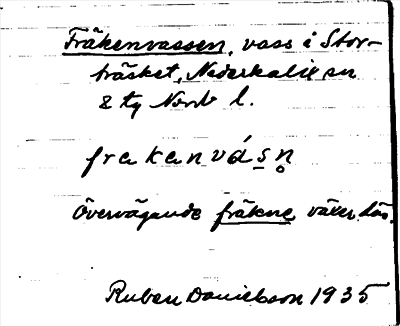 Fräkenvassen, vass i Stor-
träsket, Nederkalix sn
Norrb l.
frakanvásn
Övervägande fräkne växer där.
Ruben Danielsson 1935